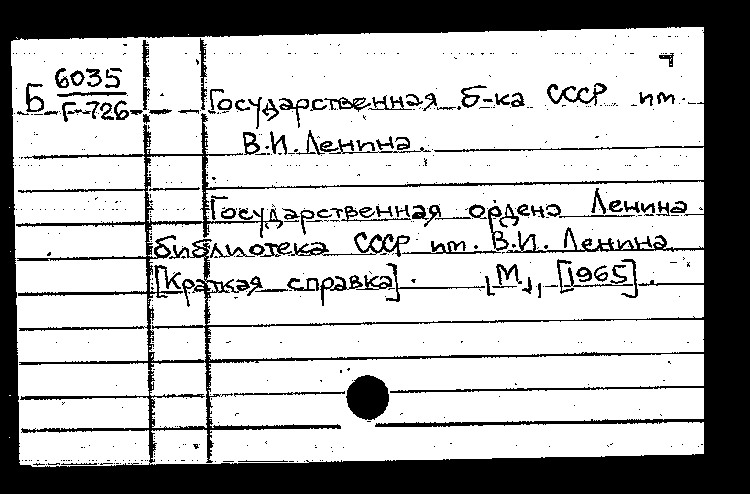 Б 6035
Г-726
Государственная б-ка СССР им.
В.И. Ленина.
Государственная ордена Ленина
библиотека СССР им. В.И. Ленина
[Краткая справка]. [М], [1965].